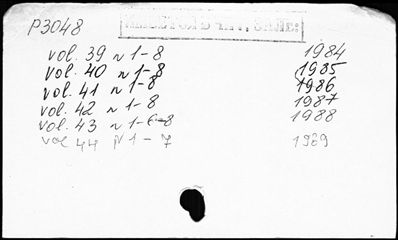 P3048
vol. 39 N 1-8 1984
vol. 40 N 1-8 1985
vol. 41 N 1-8 1986
vol. 42 N 1-8 1987
vol. 43 N 1-6-8 1988
vol 44 N 1-7 1989